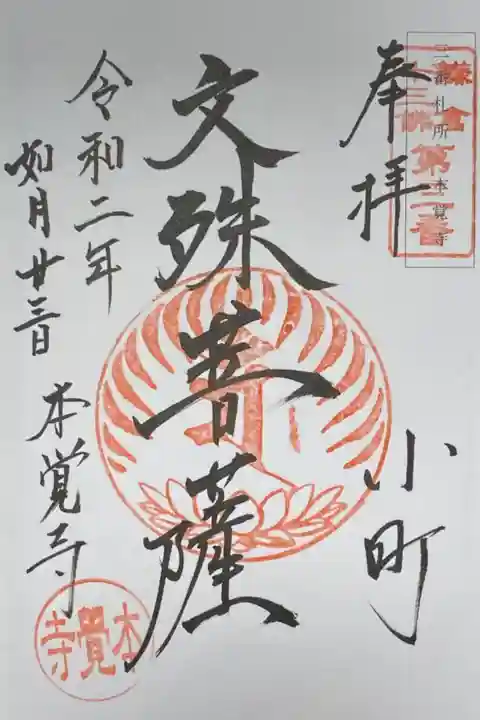 鎌倉
十三佛
第三番
三番札所 本覚寺
奉拝
小町
文殊菩薩
令和二年
如月廿三日
本覚寺
本覺寺